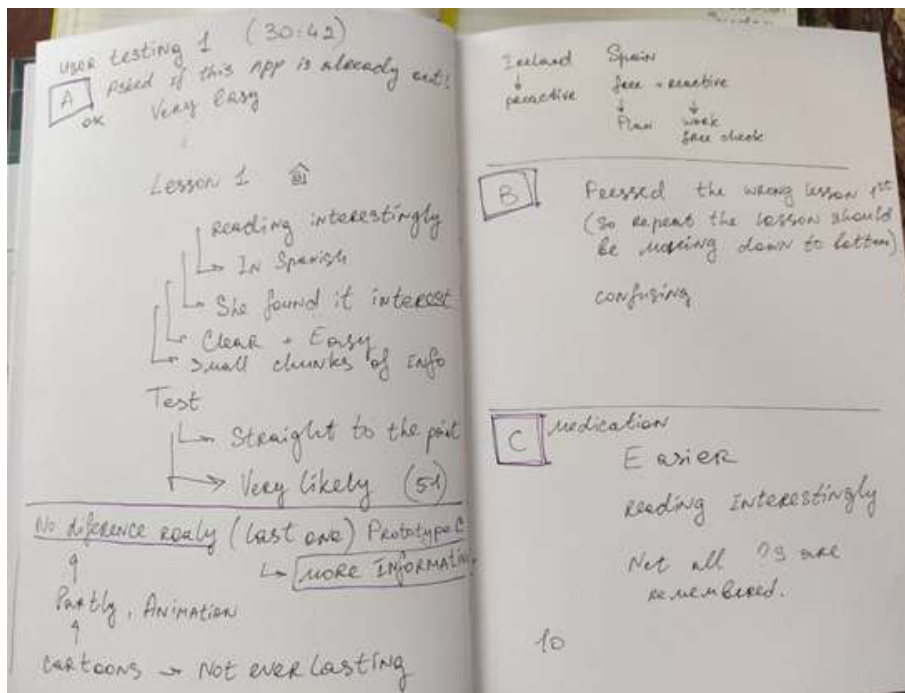 user testing 1 (30:42)
A Asked if this App is already out!
OK Very Easy
Lesson 1
Reading interestingly
In Spanish
She found it interest
Clear + Easy
Small chunks of info
Test
Straight to the point
Very likely (51)
No diference realy (last one) Prototype C
MORE INFORMATI
Partly, ANIMATION
cartoons → Not ever lasting
Iceland Spain
↓ free + reactive
preactive
↓ ↓
Plan work
free check
B Pressed the wrong lesson 1st
(so repeat the lesson should
be moving down to bottom)
confusing
C Medication
Easier
Reading Interestingly
Not all ?s are
remembered.
10